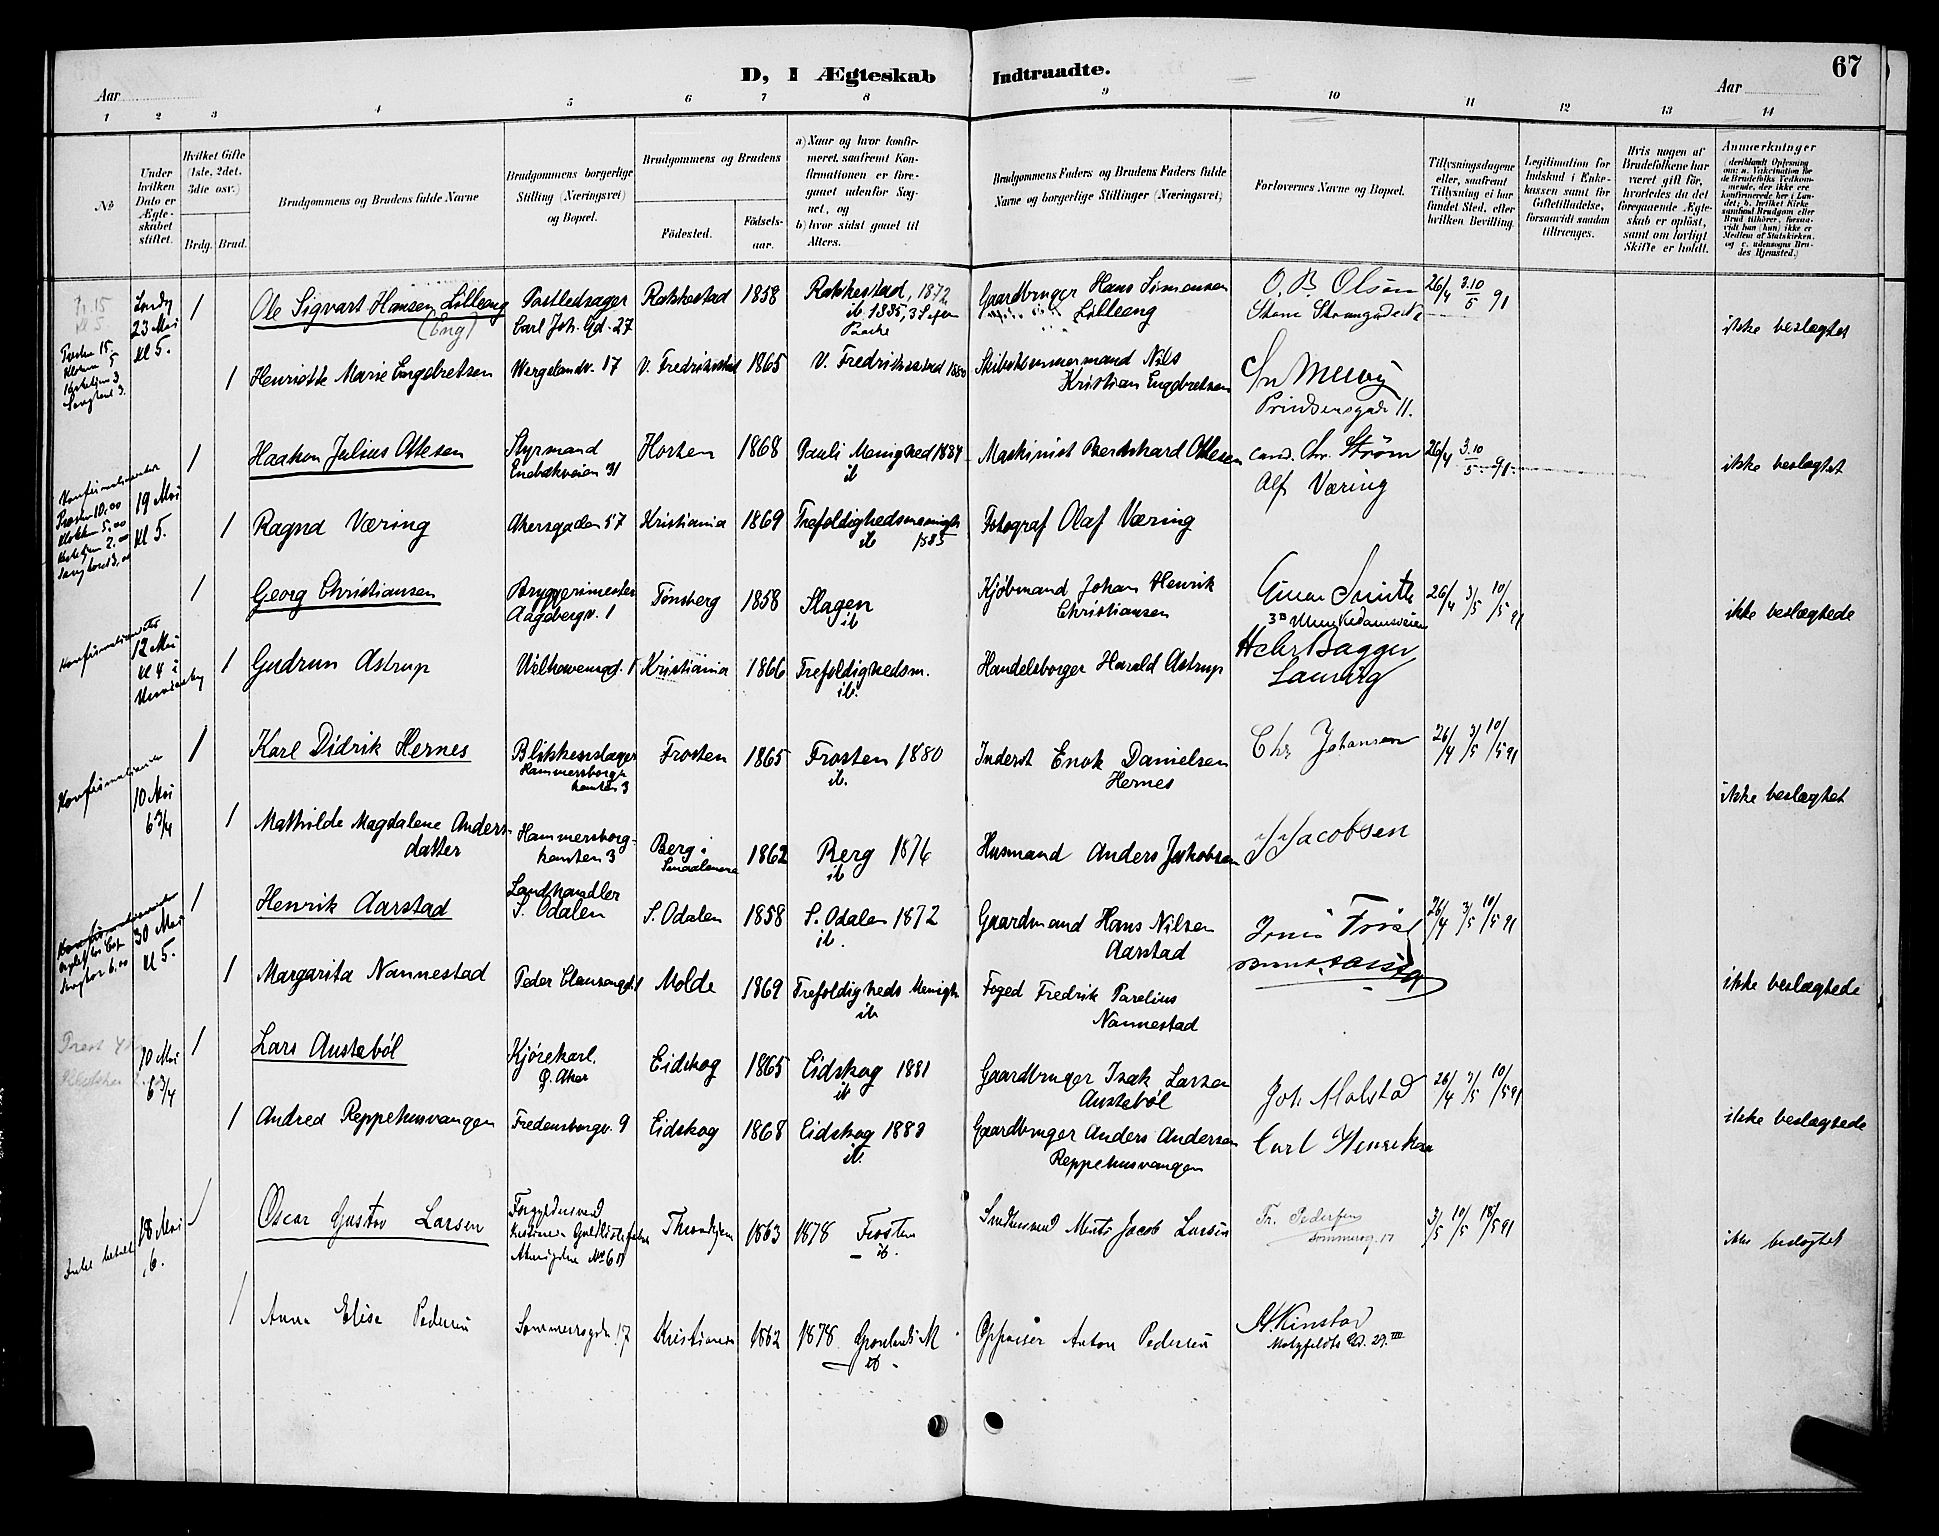 D, I Ægteskab Indtraadte.
67
Aar
Aar
1 2 3 4 5 6 7 8 9 10 11 12 13 14
№
Under hvilken Dato er Ægteskabet stiftet.
Hvilket Gifte (1ste, 2det, 3die osv.)
Brdg. Brud.
Brudgommens og Brudens fulde Navne
Brudgommens borgerlige Stilling (Næringsvei) og Bopæl.
Brudgommens og Brudens
Fødested.
Fødsels-aar.
a) Naar og hvor konfirmeret, saafremt Konfirmationen er foregaaet udenfor Sognet, og
b) hvor sidst gaaet til Alters.
Brudgommens Faders og Brudens Faders fulde Navne og borgerlige Stillinger (Næringsvei)
Forlovernes Navne og Bopæl.
Tillysningsdagene eller, saafremt Tillysning ei har fundet Sted, efter hvilken Bevilling.
Legitimation for Indskud i Enkekassen samt for Giftetilladelse, forsaavidt saadan tiltrænges.
Hvis nogen af Brudefolkene har været gift før, hvorledes da det foregaaende Ægteskab er opløst, samt om lovligt Skifte er holdt.
Anmærkninger (deriblandt Oplysning om: a. Vaccination for de Brudefolks Vedkommende, der ikke ere konfirmerede her i Landet; b. hvilket Kirkesamfund Brudgom eller Brud tilhører, forsaavidt han (hun) ikke er Medlem af Statskirken, og c. udensogns Brudes Hjemsted.)
23 Mai kl 5.
1 Ole Sigvart Hansen Lilleeng (Eng)
Postledsager Carl Joh. Gd. 27
Rakkestad 1858 Rakkestad, 1872
ib. 1885,
Gaardbruger Hans Simensen Lilleeng
O. B. Olsen
26/4 3.10/5 91
ikke beslægtet
1 Henriette Marie Engebretsen
Wergelandv. 17 V. Fredrikstad 1865 V. Fredrikstad 1880
Skibstømmermand Nils Kristian Engebretsen
Prindsensgade 11.
19 Mai kl 5.
1 Haakon Julius Ottesen
Styrmand Enebakveien 31
Horten 1868 Pauli Menighed 1884
ib
Maskinist Bernhard Ottesen
cand. Chr. Strøm
Olf Væring
26/4 3.10/5 91
ikke beslægtet
1 Ragna Væring
Akersgaden 57 Kristiania 1869 Trefoldighedsmenigh
ib 1885
Fotograf Olaf Væring
12 Mai kl 4
1 Georg Christiansen
Bryggerimester Aagebergv. 1
Tønsberg 1858 Slagen
ib
Kjøbmand Johan Henrik Christiansen
26/4 3/5 10/5 91
ikke beslægtede
1 Gudrun Astrup
Welhavensgd. 1 Kristiania 1866 Trefoldighedsm.
ib.
Handelsborger Harald Astrup
Bagger
Laurvig
10 Mai 6 3/4
1 Karl Didrik Hernes
Blikkenslager Hammersborgkanten 3
Frosten 1865 Frosten 1880
ib.
Inderst Enok Danielsen Hernes
Chr Johansen
26/4 3/5 10/5 91
ikke beslægtet
1 Mathilde Magdalene Andersdatter
Hammersborg-kanten 3
Berg i Smaalenene 1862 Berg 1876
ib
Husmand Anders Jakobsen
Jacobsen
30 Mai kl 5.
1 Henrik Aarstad
Landhandler S. Odalen
S. Odalen 1858 S. Odalen 1872
ib.
Gaardmand Hans Nilsen Aarstad
26/4 3/5 10/5 91
ikke beslægtede
1 Margarita Nannestad
Peder Clausensgd. 1 Molde 1869 Trefoldigheds Menigh
ib
Foged Fredrik Parelius Nannestad
10 Mai 6 3/4
1 Lars Austebøl
Kjørekarl. Ø. Aker
Eidskog 1865 Eidskog 1881
ib
Gaardbruger Isak Larsen Austebøl
Joh. Molstad
26/4 3/5 10/5 91
ikke beslægtede
1 Andrea Reppehusvangen
Fredensborgv. 9 Eidskog 1868 Eidskog 1883
ib.
Gaardbruger Anders Andersen Reppehusvangen
Carl Henriksen
18 Mai 6.
1 Oscar Gustav Larsen
Forgyldersvend
Throndhjem 1863 1878 Frosten
ib.
Jacob Larsen
Fr. Pedersen
Sommerog. 17
3/5 10/5 18/5 91
ikke beslægtet
1 Anna Elise Pedersen
Sommerogdn. 17 Kristiania 1862 1878 Grønlands M
ib
Oppasser Anton Pedersen
Motzfeldts Gd. 29. III